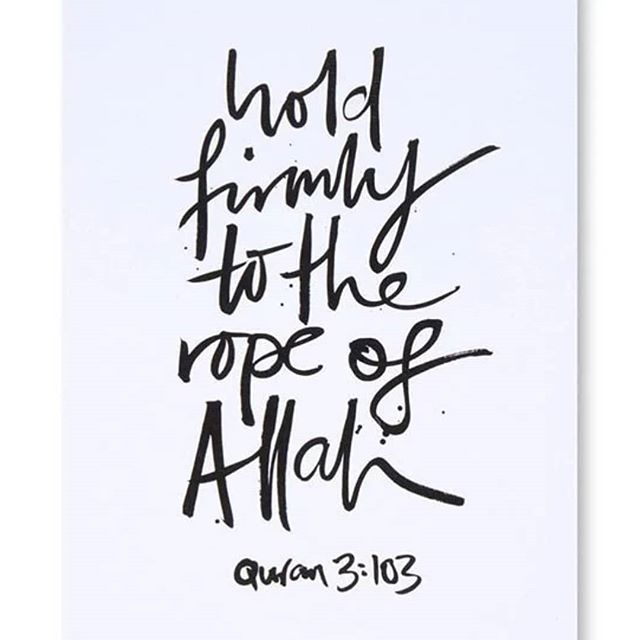 hold
firmly
to the
rope of
Allah
Quran 3:103